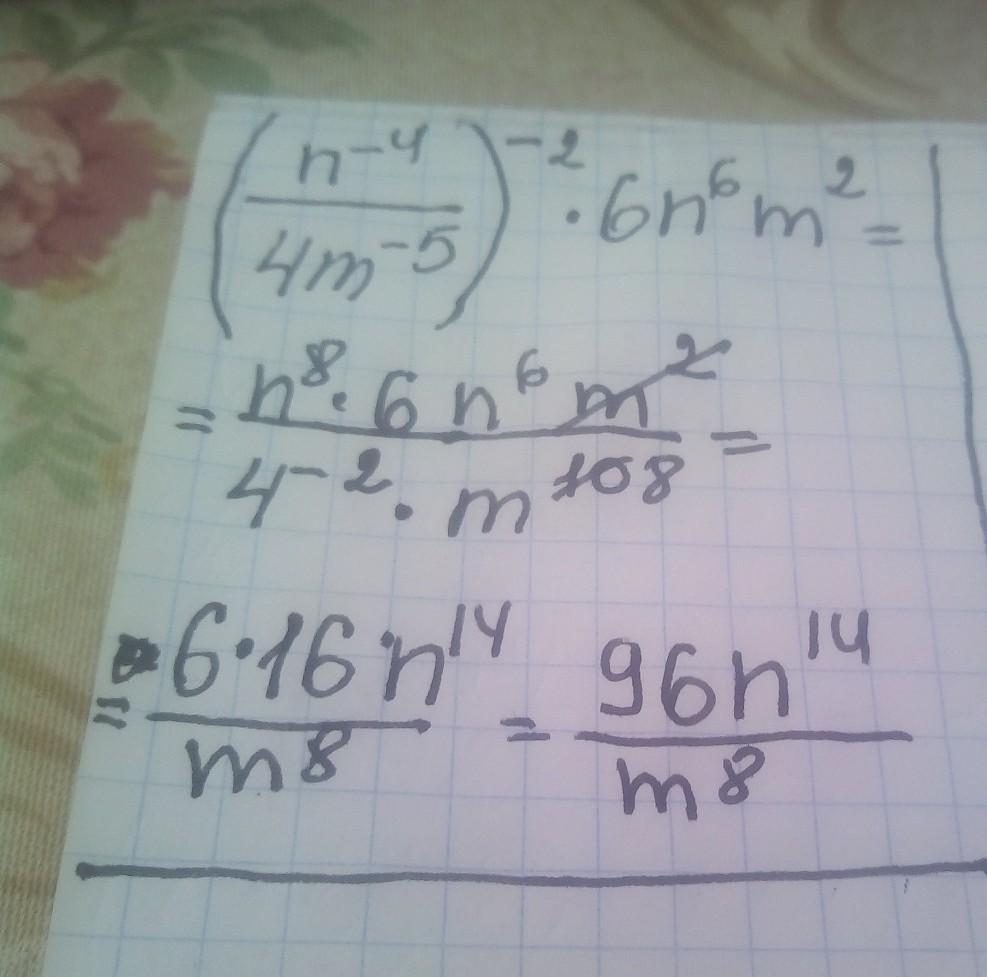 (n^-4 / 4m^-5)^-2 · 6n^6 m^2 =
= n^8 · 6 n^6 m^2 / 4^-2 · m^10 8 =
= 6·16·n^14 / m^8 = 96n^14 / m^8